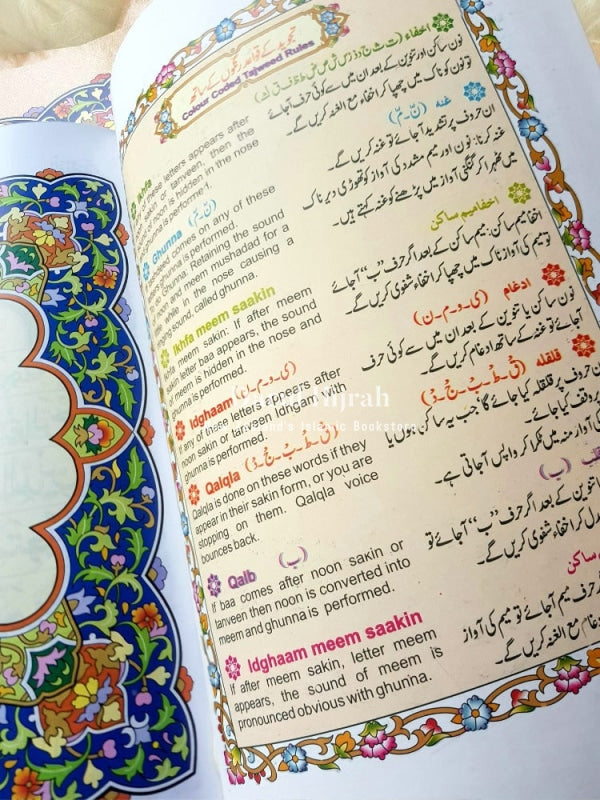 تجوید کے قاعدے رنگوں کے ساتھ
Colour Coded Tajweed Rules
Ikhfa
of these letters appears after
sakin or tanveen, then the
is hidden in the nose
ghunna is performed.
Ghunna (نّ - مّ)
tashdeed comes on any of these
letters Ghunna is performed.
Retaining the sound
noon and meem mushadad for a
little while in the nose causing a
ringing sound, called ghunna.
Ikhfa meem saakin
Ikhfa meem sakin. If after meem
sakin letter baa appears, the sound
of meem is hidden in the nose and
ghunna is performed.
Idghaam (ی - و - م - ن)
If any of these letters appears after
noon sakin or tanveen Idgam with
ghunna is performed.
Qalqla (قْ - طْ - بْ - جْ - دْ)
Qalqla is done on these words if they
appear in their sakin form, or you are
stopping on them. Qalqla voice
bounces back.
Qalb (ب)
If baa comes after noon sakin or
tanveen then noon is converted into
meem and ghunna is performed.
Idghaam meem saakin
If after meem sakin, letter meem
appears, the sound of meem is
pronounced obvious with ghunna.
اخفاء (ت ث ج د ذ ز س ش ص ض ط ظ ف ق ک)
نون ساکن اور تنوین کے بعد ان میں سے کوئی حرف آجائے
تو نون کو ناک میں چھپا کر اخفاء مع الغنہ کریں گے۔
غنہ (نّ - مّ)
ان حروف پر تشدید آجائے تو غنہ کریں گے۔
غنہ کرنا: نون اور میم مشدد کی آواز کو تھوڑی دیر ناک
میں ٹھہرا کر گنگنی آواز میں پڑھنے کو غنہ کہتے ہیں۔
اخفا میم ساکن
اخفا میم ساکن: میم ساکن کے بعد اگر حرف ”ب“ آجائے
تو میم کی آواز ناک میں چھپا کر اخفاء شفوی کریں گے۔
ادغام (ی - و - م - ن)
نون ساکن یا تنوین کے بعد ان میں سے کوئی حرف
آجائے تو غنہ کے ساتھ ادغام کریں گے۔
قلقلہ (قْ - طْ - بْ - جْ - دْ)
ان حروف پر قلقلہ کیا جائے گا جب یہ ساکن ہوں یا
وقف کیا جائے۔
آواز منہ میں ٹکرا کر واپس آجاتی ہے۔
قلب (ب)
تنوین کے بعد اگر حرف ”ب“ آجائے تو
بدل کر اخفاء شفوی کریں گے۔
ساکن
حرف میم آجائے تو میم کی آواز
ادغام مع الغنہ کریں گے۔
Hijrah
Islamic Bookstore